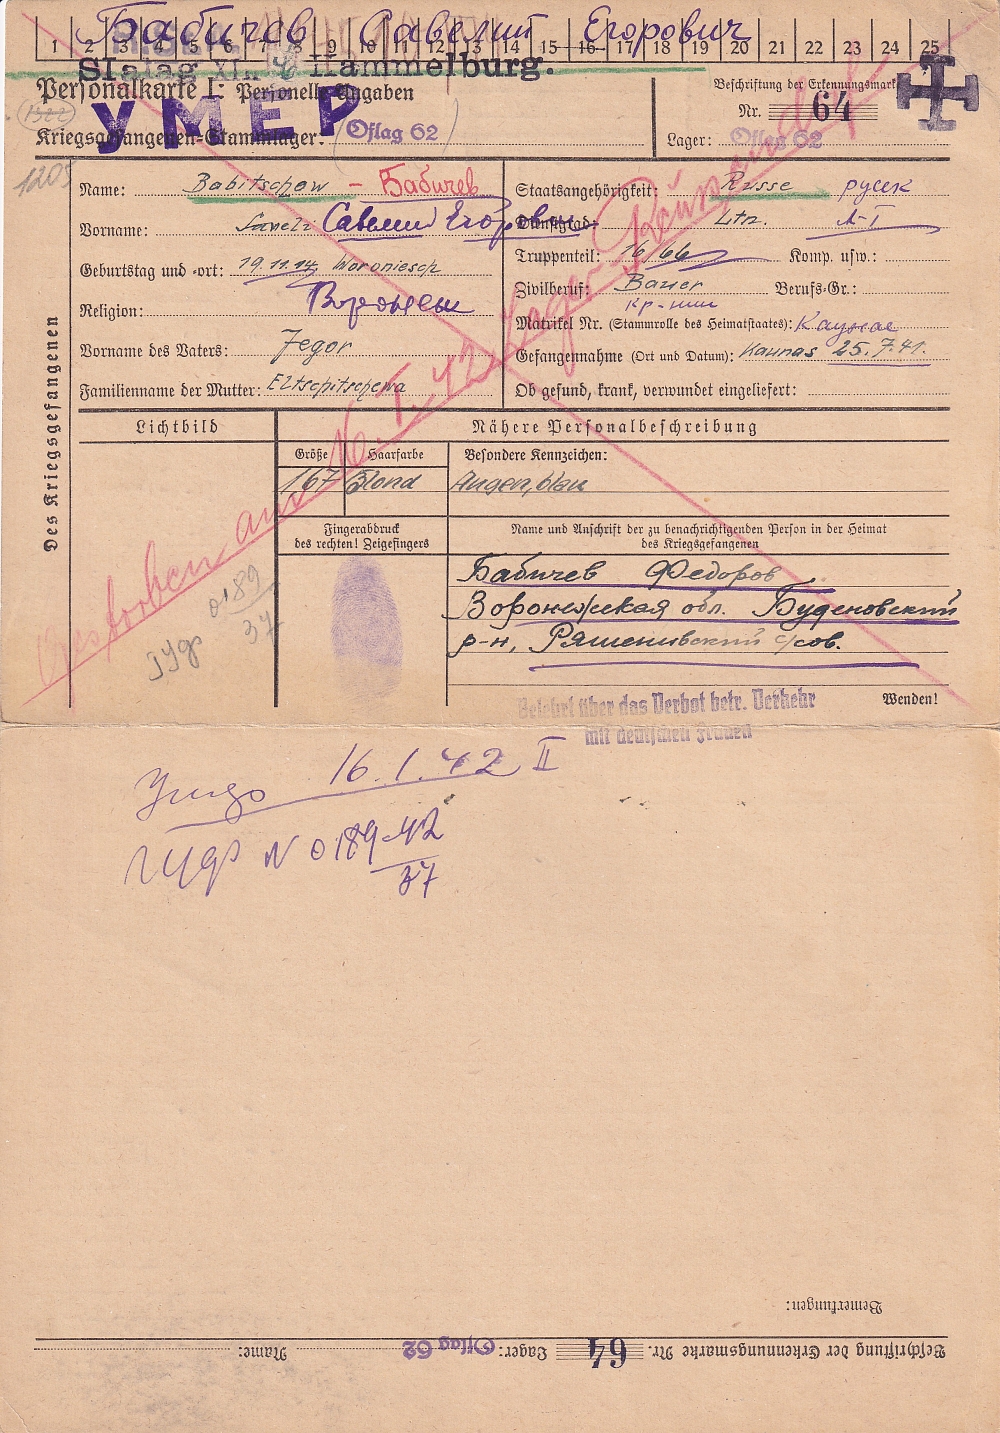 Бабичев Савелий Егорович
1 2 3 4 5 6 7 8 9 10 11 12 13 14 15 16 17 18 19 20 21 22 23 24 25
Stalag XIII C Hammelburg.
Personalkarte I: Personelle Angaben
Beschriftung der Erkennungsmarke
1322
УМЕР
Nr. 64
Kriegsgefangenen-Stammlager: (Oflag 62)
Lager: Oflag 62
1205
Des Kriegsgefangenen
Name: Babitschew - Бабичев
Vorname: Saveli Савелий Егорович
Geburtstag und -ort: 19.11.14 Woroniesch
Religion: Воронеш
Vorname des Vaters: Jegor
Familienname der Mutter: Eltschitschewa
Staatsangehörigkeit: Russe русск
Dienstgrad: Ltn. Л-т
Truppenteil: 16/66 Komp. usw.:
Zivilberuf: Bauer Berufs-Gr.:
кр-нин
Matrikel Nr. (Stammrolle des Heimatstaates): Каунас
Gefangennahme (Ort und Datum): Kaunas 25.7.41.
Ob gesund, krank, verwundet eingeliefert:
Gestorben am 16.I.42 Lager
Lichtbild
Nähere Personalbeschreibung
Größe Haarfarbe Besondere Kennzeichen:
167 Blond Augen, blau
Fingerabdruck
des rechten! Zeigefingers
Name und Anschrift der zu benachrichtigenden Person in der Heimat
des Kriegsgefangenen
Бабичев Федоров
Воронежская обл. Буденовский
р-н, Ряшенивский с/сов.
0189
37
Wenden!
Belehrt über das Verbot betr. Verkehr
mit deutschen Frauen
16.1.42 II
N 0189-42
37
Bemerkungen:
Beschriftung der Erkennungsmarke Nr. 64 Lager: Oflag 62 Name: